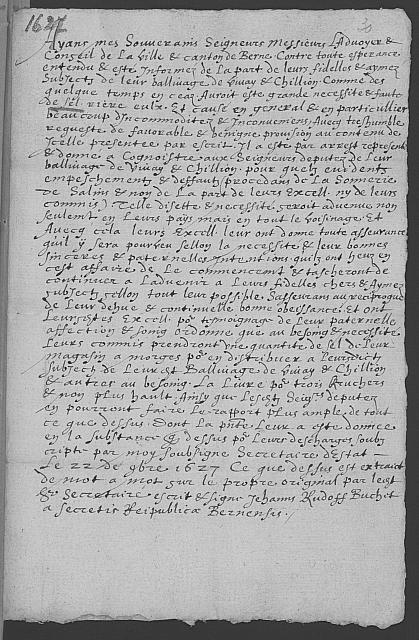 1627
Ayans mes Souverains Seigneurs Messieurs L'Advoyer &
Conseil de La Ville & canton de Berne Contre toute esperance
entendu & esté Informez de La part de leurs fidelles & aymez
Subjects de leur balliuage de Vivay & Chillion Comme des
quelque temps en ceaz Auroit esté grande necessité & faute
de sel rière eulx Et cause en general & en particullier
beaucoup d'Incommoditez & Inconveniens Avecq treshumble
requeste de favorable & benigne provision au contenu de
Icelle presentee par escrit. Il a esté par arrest represente
& donné a Cognoistre aux Seigneurs deputez de Leur
balliuage de Vivay & Chillion, pour quelz evidents
empeschements & deffautz procedans de La Sonnerie
de Salins & non de La part de leurs Excell. ny de leurs
commis) Telle disette & necessité seroit advenue non
seulemt en Leurs pays mais en tout le voisinage Et
Avecq cela leurs Excell. leur ont donné toute asseurance
quil y sera pourveu sellon la necessité & leur bonnes
sinceres & paternelles Intentions quilz ont heuz en
cest affaire de Le commencemt & tascheront de
continuer a L'advenir a Leurs fidelles chers & Aymez
subjects sellon tout leur possible. S'asseurans au reciproque
de Leur dehue & continuelle bonne obeissance, Et ont
Leursdites Excell. po tesmoignage de Leur paternelle
affection & soing ordonné que au besoing & necessité
Leurs commis prendront une quantité de sel de Leur
magasin a morges po en distribuer a Leursdicts
Subjects de Leurdt Balliuage de Vivay & Chillion
& autres au besoing La Livre po trois Kruchers
& non plus hault Ainsy que Lesdts Seigrs deputez
en pourront faire Le rapport plus ample de tout
ce que dessus. Dont La pnte Leur a esté donnée
en la Substance q dessus po Leurs descharges soubz
cripte par moy soubsigné Secretaire d'Estat —
Le 22 de 9bre 1627 Ce que dessus est extraict
de mot a mot sur le propre original par ledt
Sr Secretaire escrit & signé Jehanns Rudolff Buchet
a Secretis Reipublicæ Bernensis./